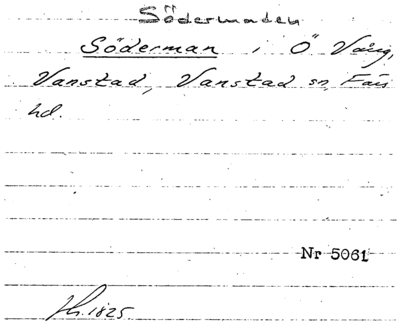 Södermaden
Söderman i Ö Vång,
Vanstad, Vanstad sn, Färs
hd.
Nr 5061
Hs. 1825.